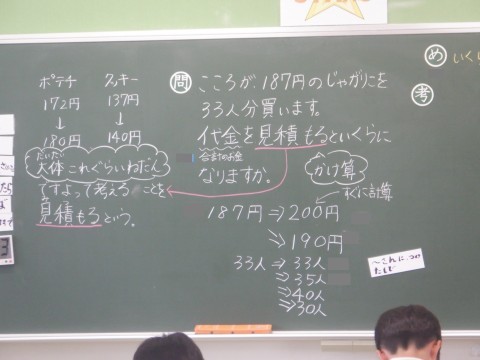 ポテチ クッキー
172円 137円
↓ ↓
180円 140円
だいたい
大体これぐらいねだん
ですよって考えることを
見積もるという。
問 こころが187円のじゃがりこを
33人分買います。
代金を見積もるといくらに
合計のお金
なりますか。
かけ算
すぐに計算
187円⇒200円
⇒190円
33人⇒33人
⇒35人
⇒40人
⇒30人
め いくら
考